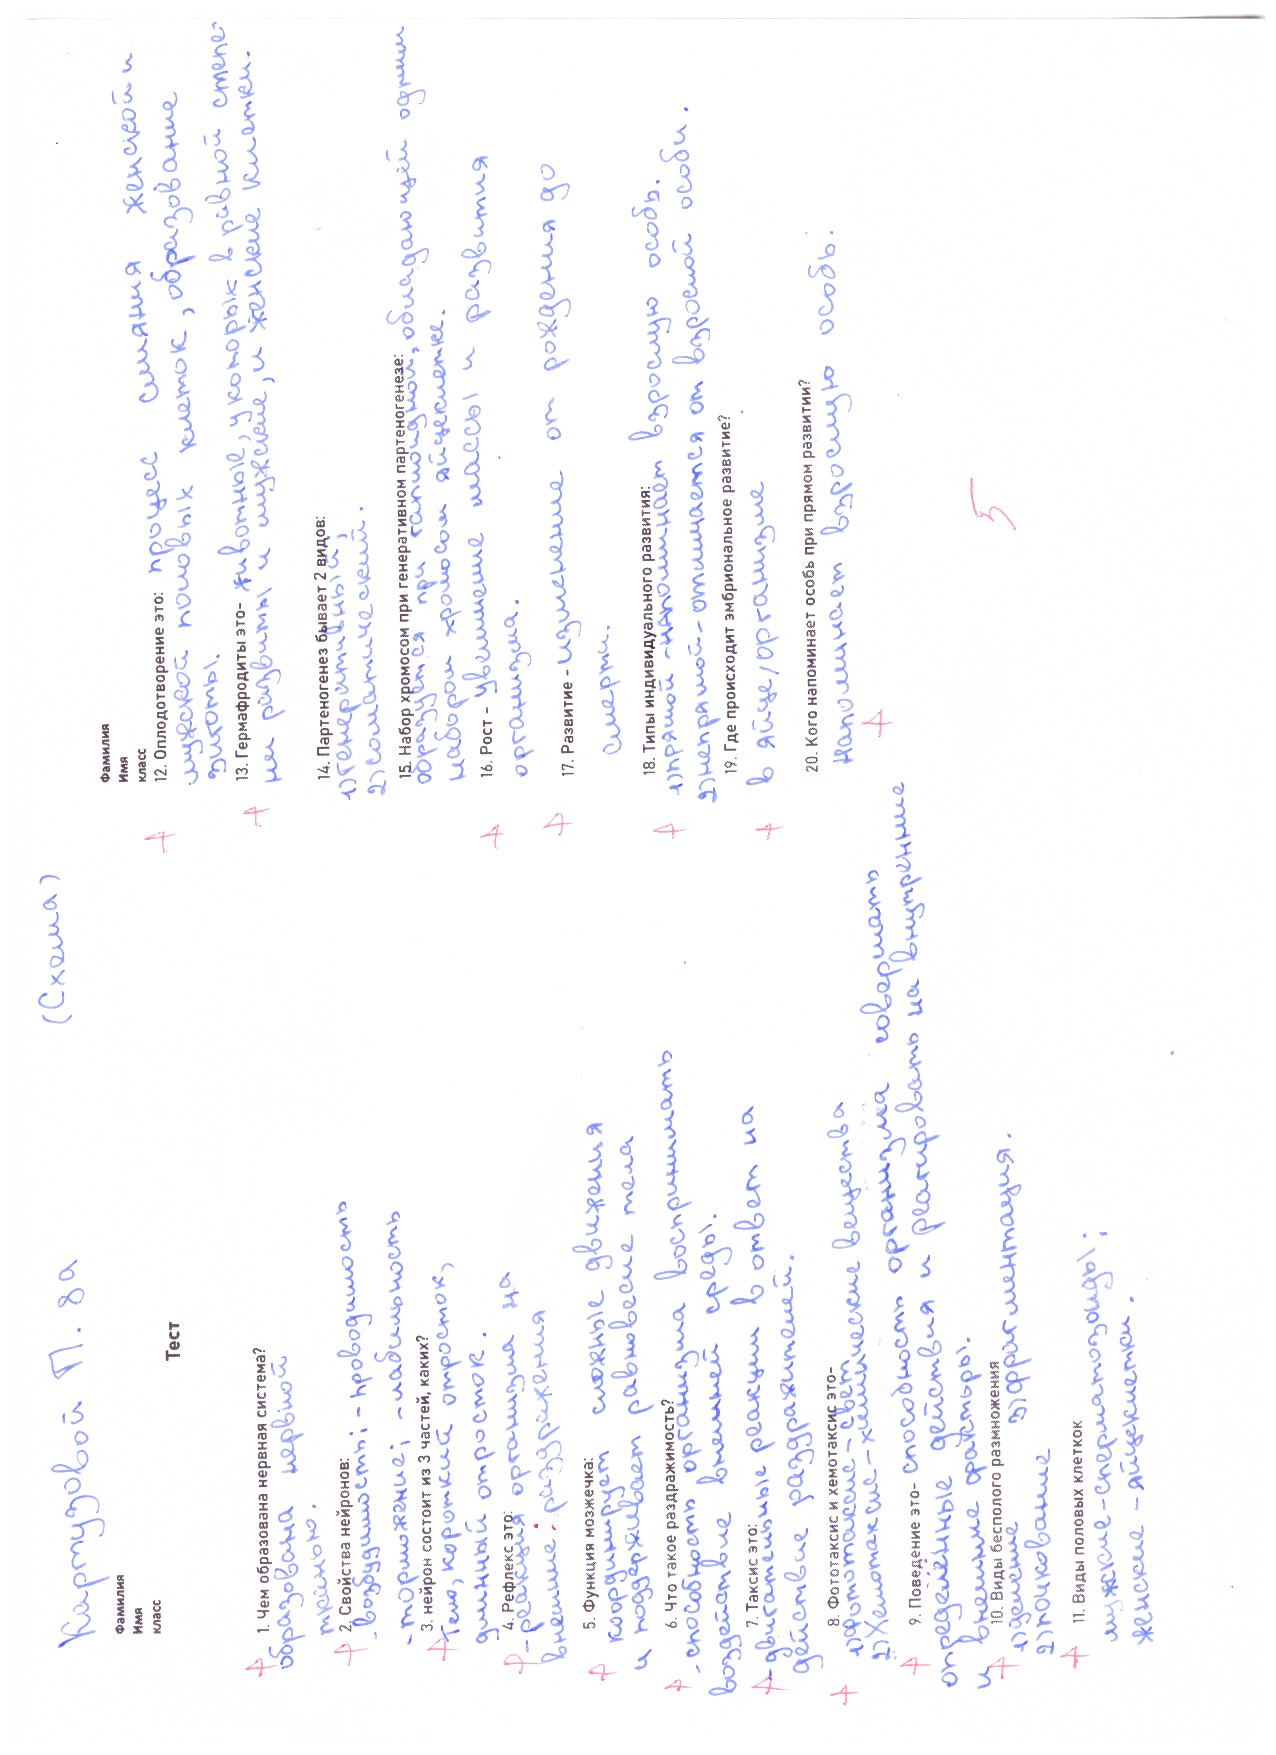 Картузовой П. 8а (Схема)
Фамилия
Имя
класс
Тест
1. Чем образована нервная система?
образована нервной
тканью.
2. Свойства нейронов:
- возбудимость; - проводимость
- торможение; - лабильность
3. нейрон состоит из 3 частей, каких?
Тело, короткий отросток,
длинный отросток.
4. Рефлекс это:
- реакция организма на
внешние раздражения
5. Функция мозжечка:
координирует сложные движения
и поддерживает равновесие тела
6. Что такое раздражимость?
- способность организма воспринимать
воздействие внешней среды.
7. Таксис это:
- двигательные реакции в ответ на
действие раздражителей.
8. Фототаксис и хемотаксис это-
1) фототаксис - свет
2) Хемотаксис - химические вещества
9. Поведение это- способность организма совершать
определённые действия и реагировать на внутренние
и внешние факторы.
10. Виды бесполого размножения
1) деление 3) фрагментация.
2) почкование
11. Виды половых клеткок
мужские - сперматозоиды;
женские - яйцеклетки.
Фамилия
Имя
класс
12. Оплодотворение это: процесс слияния женской и
мужской половых клеток, образование
зиготы.
13. Гермафродиты это- животные, у которых в равной степе-
ни развиты и мужские, и женские клетки.
14. Партеногенез бывает 2 видов:
1) генеративный;
2) соматический.
15. Набор хромосом при генеративном партеногенезе:
образуется при гаплоидной, обладающей одним
набором хромосом яйцеклетке.
16. Рост - увеличение массы и развития
организма.
17. Развитие - изменение от рождения до
смерти.
18. Типы индивидуального развития:
1) прямой - напоминает взрослую особь.
2) непрямой - отличается от взрослой особи.
19. Где происходит эмбриональное развитие?
в яйце/организме
20. Кого напоминает особь при прямом развитии?
напоминает взрослую особь.
5